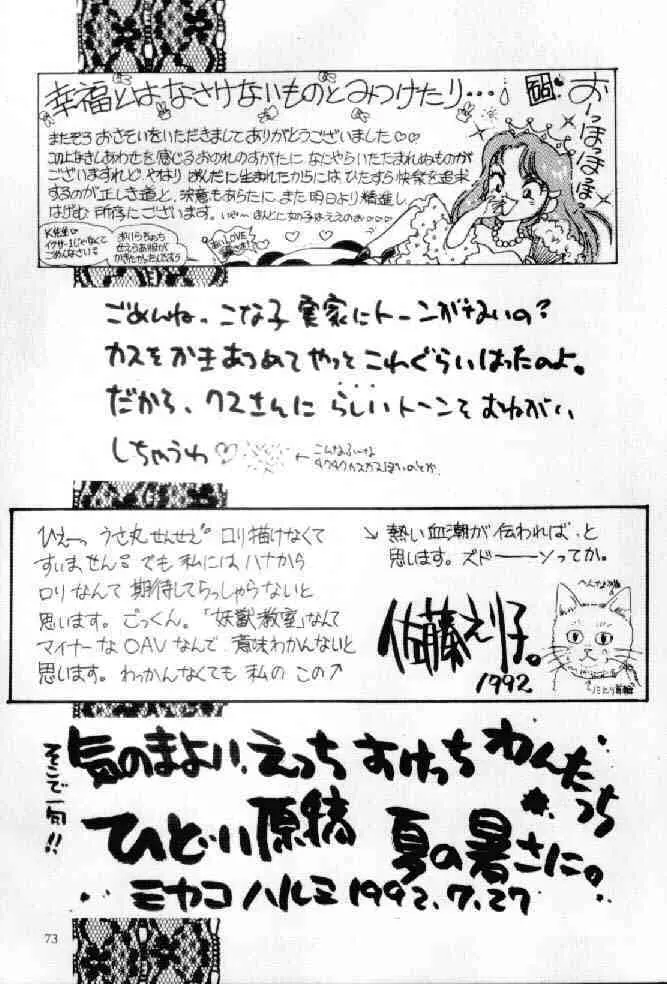 幸福とは、なさけないものとみつけたり…
おーっほっほっほ
またぞろおさそいをいただきましてありがとうございました♡♡
このよなきしあわせを感じるおのれのすがたに なにやらいたたまれぬものが
ございますれど、やはり に生まれたからには、ひたすら快楽を追求
するのが正しき道と、決意もあらたに、また明日より精進し
はげむ所存にございます。いやーほんとに女の子はええのお
K先生♡
イクサー1じゃなくて
ごめんなさい
ごめんね、こな子 実家にトーンがないの?
カスをかきあつめてやっとこれぐらいはったのよ。
だから、クスさんに らしいトーンをおねがい
しちゃうわ♡
←こんなふーな
ひえーっ うさ丸せんせえ ロリ描けなくて
すいません。でも私にはハナから
ロリなんて期待してらっしゃらないと
思います。ごっくん。「妖獣教室」なんて
マイナーなOAVなんで、意味わかんないと
思います。わっかんなくても 私の この↗
↘ 熱い血潮が伝われば、と
思います。ズドーーンってか。
佐藤えり子。
1992
そこで一句!!
気のまよい、えっち おけっち わんたっち
ひどい原稿 夏の暑さに。
ミヤコハルミ 1992.7.27
73